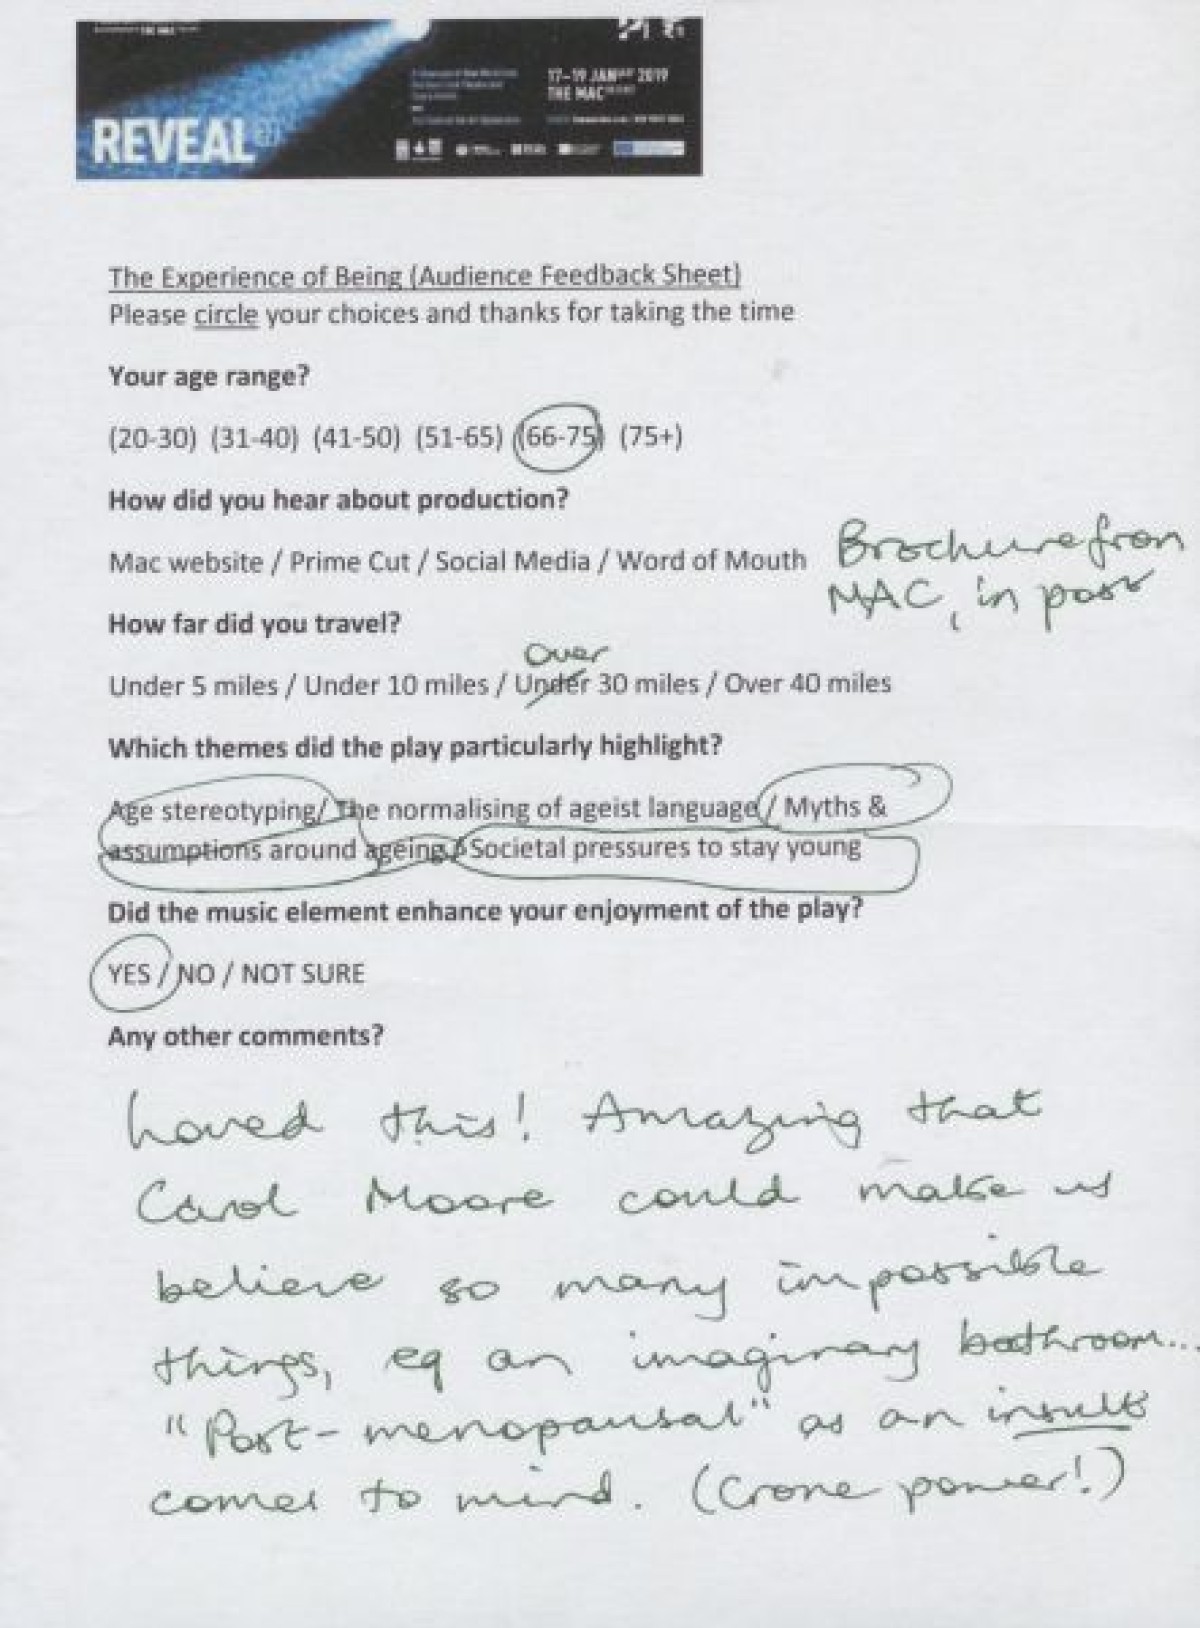 REVEAL
17-19 JAN 2019
THE MAC
The Experience of Being (Audience Feedback Sheet)
Please circle your choices and thanks for taking the time
Your age range?
(20-30) (31-40) (41-50) (51-65) (66-75) (75+)
How did you hear about production?
Mac website / Prime Cut / Social Media / Word of Mouth
Brochure from
MAC, in post
How far did you travel?
Over
Under 5 miles / Under 10 miles / Under 30 miles / Over 40 miles
Which themes did the play particularly highlight?
Age stereotyping/ The normalising of ageist language / Myths &
assumptions around ageing / Societal pressures to stay young
Did the music element enhance your enjoyment of the play?
YES / NO / NOT SURE
Any other comments?
Loved this! Amazing that
Carol Moore could make us
believe so many impossible
things, eg an imaginary bathroom...
"Post-menopausal" as an insult
comes to mind. (Crone power!)